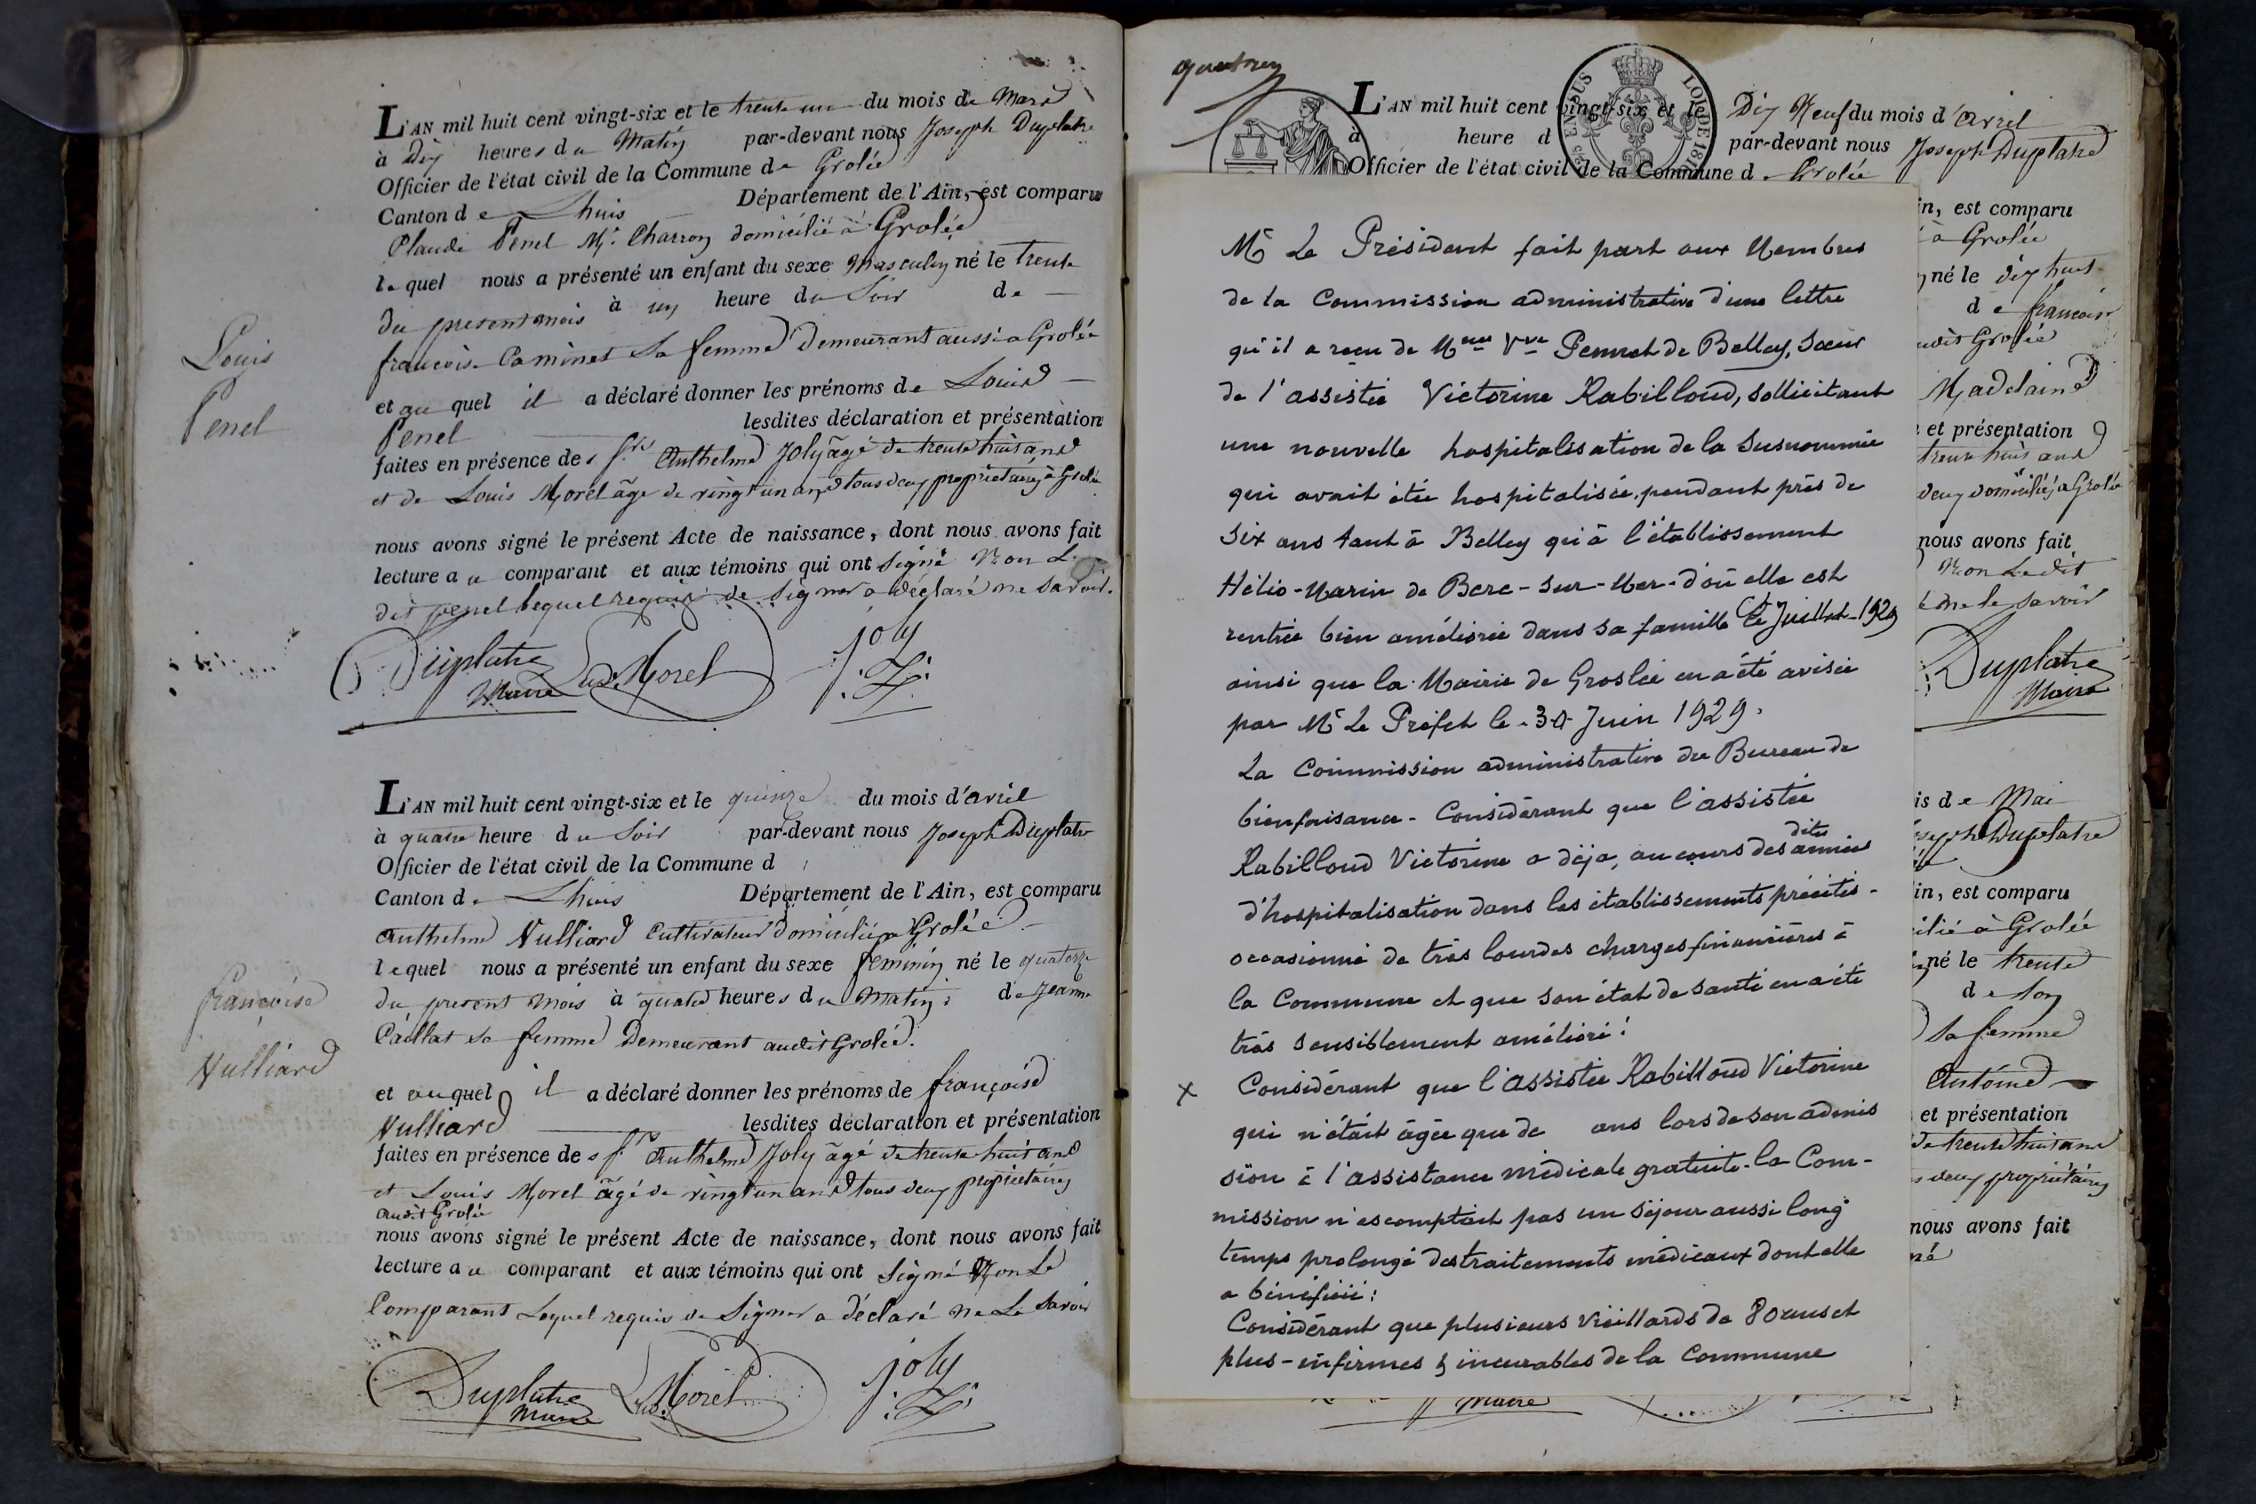 L'AN mil huit cent vingt-six et le trente un du mois de Mars
à Dix heures du Matin par-devant nous Joseph Duplatre
Officier de l'état civil de la Commune de Grolée
Canton de Lhuis Département de l'Ain, est comparu
Claude Penel Md. Charron domicilié à Grolée
lequel nous a présenté un enfant du sexe Masculin né le trente
du present mois à un heure du Soir de
francoise Caminet Sa femme demeurant aussi a Grolée
et au quel il a déclaré donner les prénoms de Louis
Penel lesdites déclaration et présentation
faites en présence de Srs Anthelme Joly âgé de trente huit ans
et de Louis Morel âgé de vingt un ans tous deux propriétaires à Grolée
nous avons signé le présent Acte de naissance, dont nous avons fait
lecture au comparant et aux témoins qui ont signé Non Le
dit penel lequel requis de signer a déclaré ne savoir.
Duplatre Ls. Morel joly
Maire
Louis
Penel
L'AN mil huit cent vingt-six et le quinze du mois d'avril
à quatre heure du Soir par-devant nous Joseph Duplatre
Officier de l'état civil de la Commune d
Canton de Lhuis Département de l'Ain, est comparu
Anthelme Vulliard Cultivateur domicilié a Grolée
lequel nous a présenté un enfant du sexe feminin né le quatorze
du present mois à quatre heures du Matin de Jeanne
Caillat sa femme Demeurant audit Grolée.
et auquel il a déclaré donner les prénoms de françoise
Vulliard lesdites déclaration et présentation
faites en présence de Srs Anthelme Joly âgé de trente huit ans
et Louis Morel âgé de vingt un ans tous deux propriétaires
audit Grolée
nous avons signé le présent Acte de naissance, dont nous avons fait
lecture au comparant et aux témoins qui ont signé Non Le
Comparant Lequel requis de Signer a déclaré ne Le Savoir
Duplatre Ls. Morel joly
Maire
françoise
Vulliard
L'AN mil huit cent vingt-six et le Dix Neuf du mois d'avril
à heure d par-devant nous Joseph Duplatre
Officier de l'état civil de la Commune de Grolée
LOI DE 181
Mr Le Président fait part aux Membres
de la Commission administrative d'une lettre
qu'il a reçu de Mme Vve Pennet de Belley, Sœur
de l'assistée Victorine Rabilloud, sollicitant
une nouvelle hospitalisation de la Susnommée
qui avait été hospitalisée, pendant près de
Six ans tant à Belley qu'à l'établissement
Hélio-Marin de Berc-sur-Mer- d'où elle est
rentrée bien améliorée dans sa famille le Juillet-1929
ainsi que la Mairie de Groslée en a été avisée
par Mr Le Préfet le 30 Juin 1929.
La Commission administrative du Bureau de
bienfaisance- Considérant que l'assistée
Rabilloud Victorine a déjà, au cours des dites années
d'hospitalisation dans les établissements précités-
occasionné de très lourdes charges financières à
la Commune et que son état de santé en a été
très sensiblement amélioré:
x Considérant que l'assistée Rabilloud Victorine
qui n'était âgée que de ans lors de son admis
sion à l'assistance médicale gratuite- la Com-
mission n'escomptait pas un séjour aussi long
temps prolongé des traitements médicaux dont elle
a bénéficié:
Considérant que plusieurs vieillards de 80 ans et
plus- infirmes & incurables de la Commune
in, est comparu
à Grolée
né le dix huit
de francoise
udit Grolée
Madelaine
et présentation
trente huit ans
deux domiciliés a Grolée
nous avons fait
Non Ledit
ne le savoir
Duplatre
Maire
is de Mai
Joseph Duplatre
in, est comparu
ilié à Grolée
né le trente
de
sa femme
Antoine
et présentation
de trente huit ans
deux propriétaires
nous avons fait
né
Maire